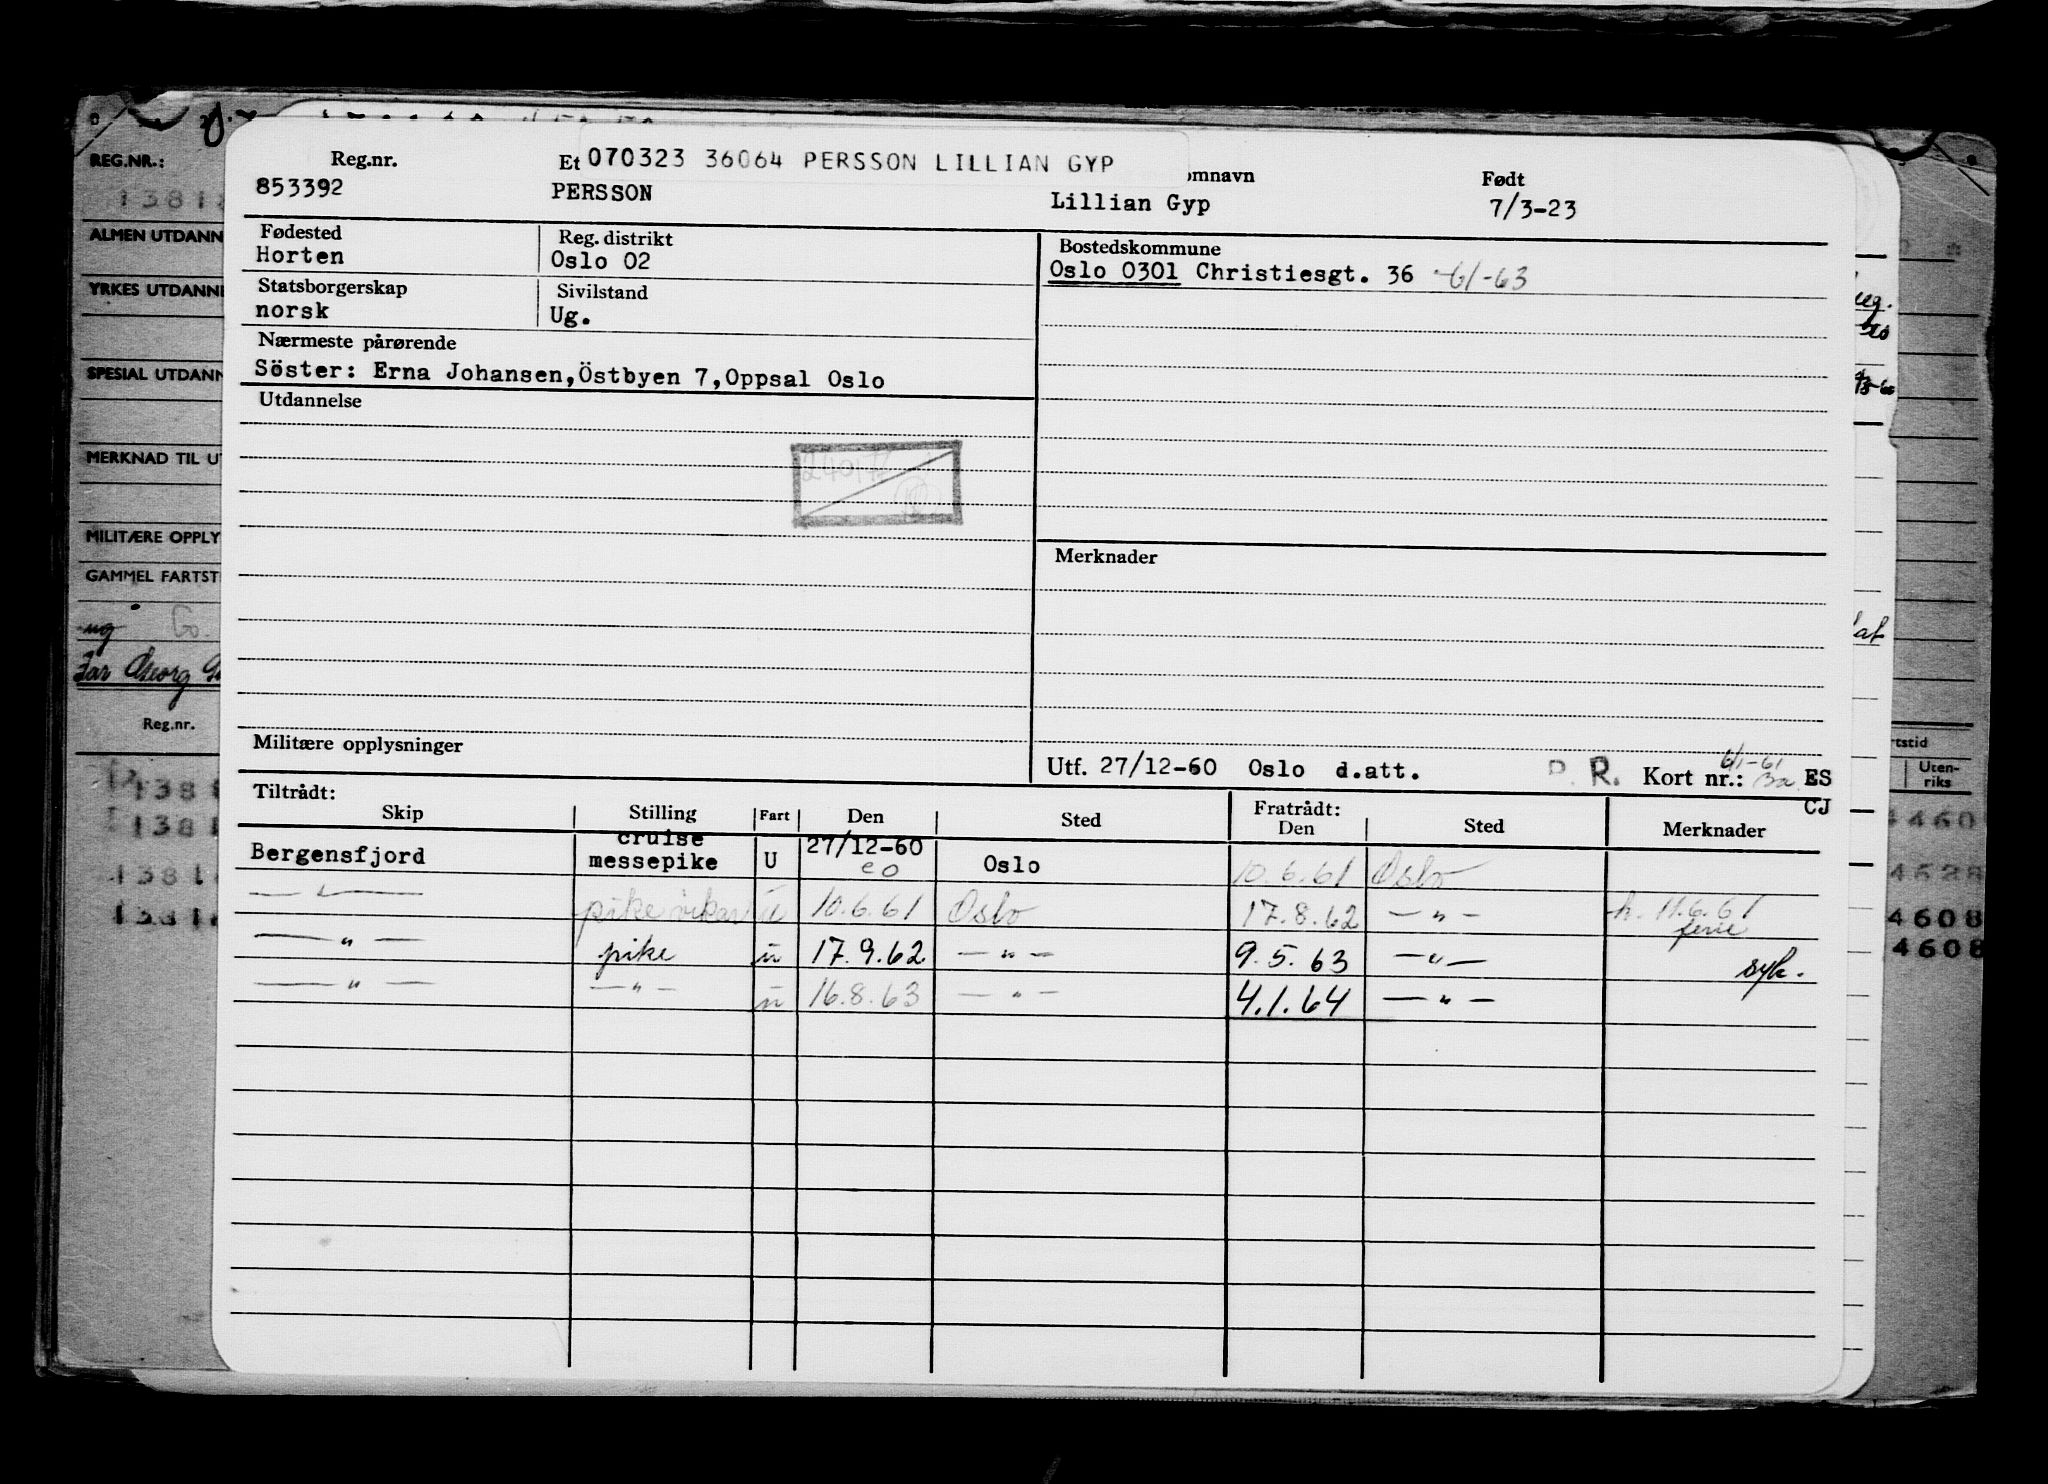 Reg.nr. Et 070323 36064 PERSSON LILLIAN GYP omnavn Født
853392 PERSSON Lillian Gyp 7/3-23
Fødested Reg. distrikt Bostedskommune
Horten Oslo 02 Oslo 0301 Christiesgt. 36 6/1-63
Statsborgerskap Sivilstand
norsk Ug.
Nærmeste pårørende
Söster: Erna Johansen,Östbyen 7,Oppsal Oslo
Utdannelse
Merknader
Militære opplysninger
Utf. 27/12-60 Oslo d.att. P. R. Kort nr.: 6/1-61 ES
CJ
Tiltrådt: Fratrådt:
Skip Stilling Fart Den Sted Den Sted Merknader
Bergensfjord cruise messepike U 27/12-60 eo Oslo 10.6.61 Oslo
— " — pike vikar u 10.6.61 Oslo 17.8.62 — " — h. 11.6.61 ferie
— " — pike u 17.9.62 — " — 9.5.63 — " — syk.
— " — — " — u 16.8.63 — " — 4.1.64 — " —
REG.NR.:
1381
ALMEN UTDANN
YRKES UTDANN
SPESIAL UTDANN
MERKNAD TIL UT
MILITÆRE OPPLY
GAMMEL FARTST
ug
Far Georg
Reg.nr.
138
1381
1381
1381
rtstid
Uten-
riks
4460
4528
4608
4608